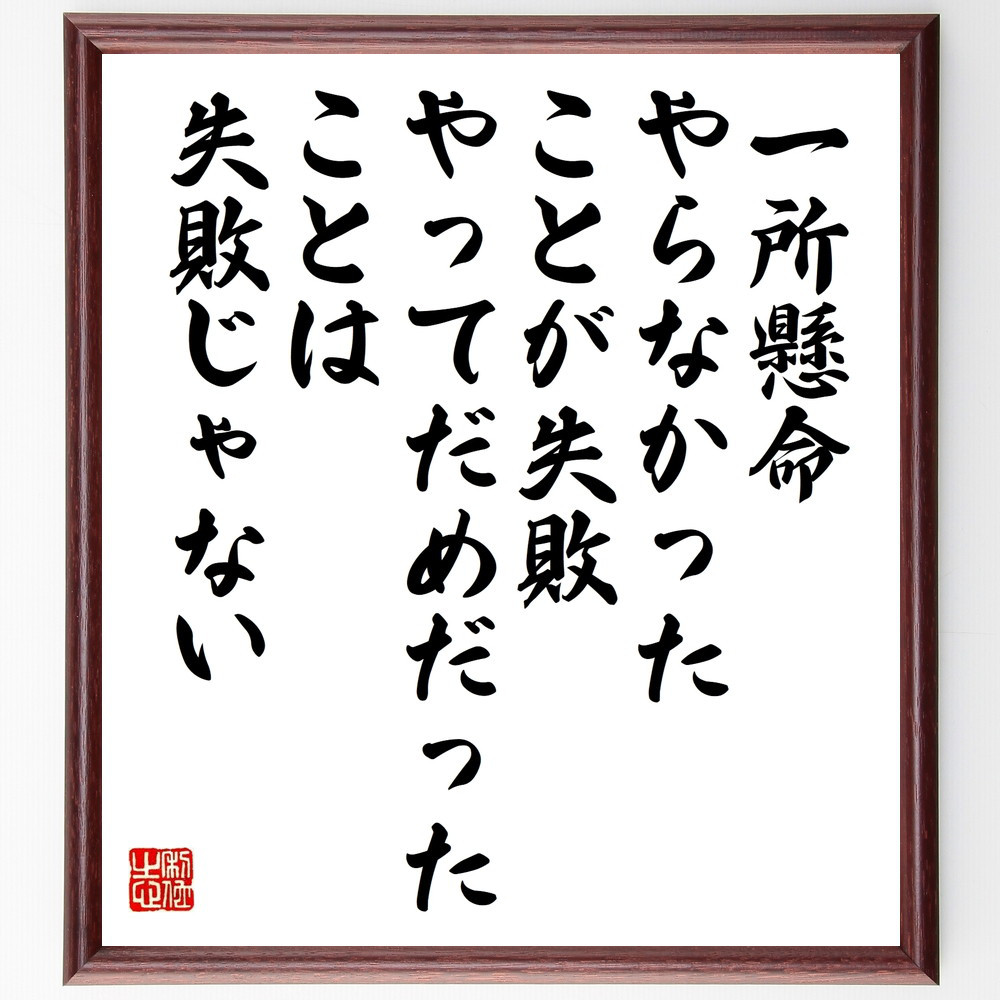 一所懸命
やらなかった
ことが失敗
やってだめだった
ことは
失敗じゃない